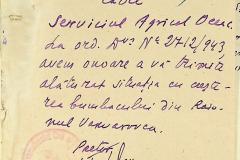 Către
Serviciul Agricol Ocea
La ord. Dvs No 2712/943
avem onoare a vă trimite
alăturat situația cu
bumbacului din Raio
nul Varvarovca.